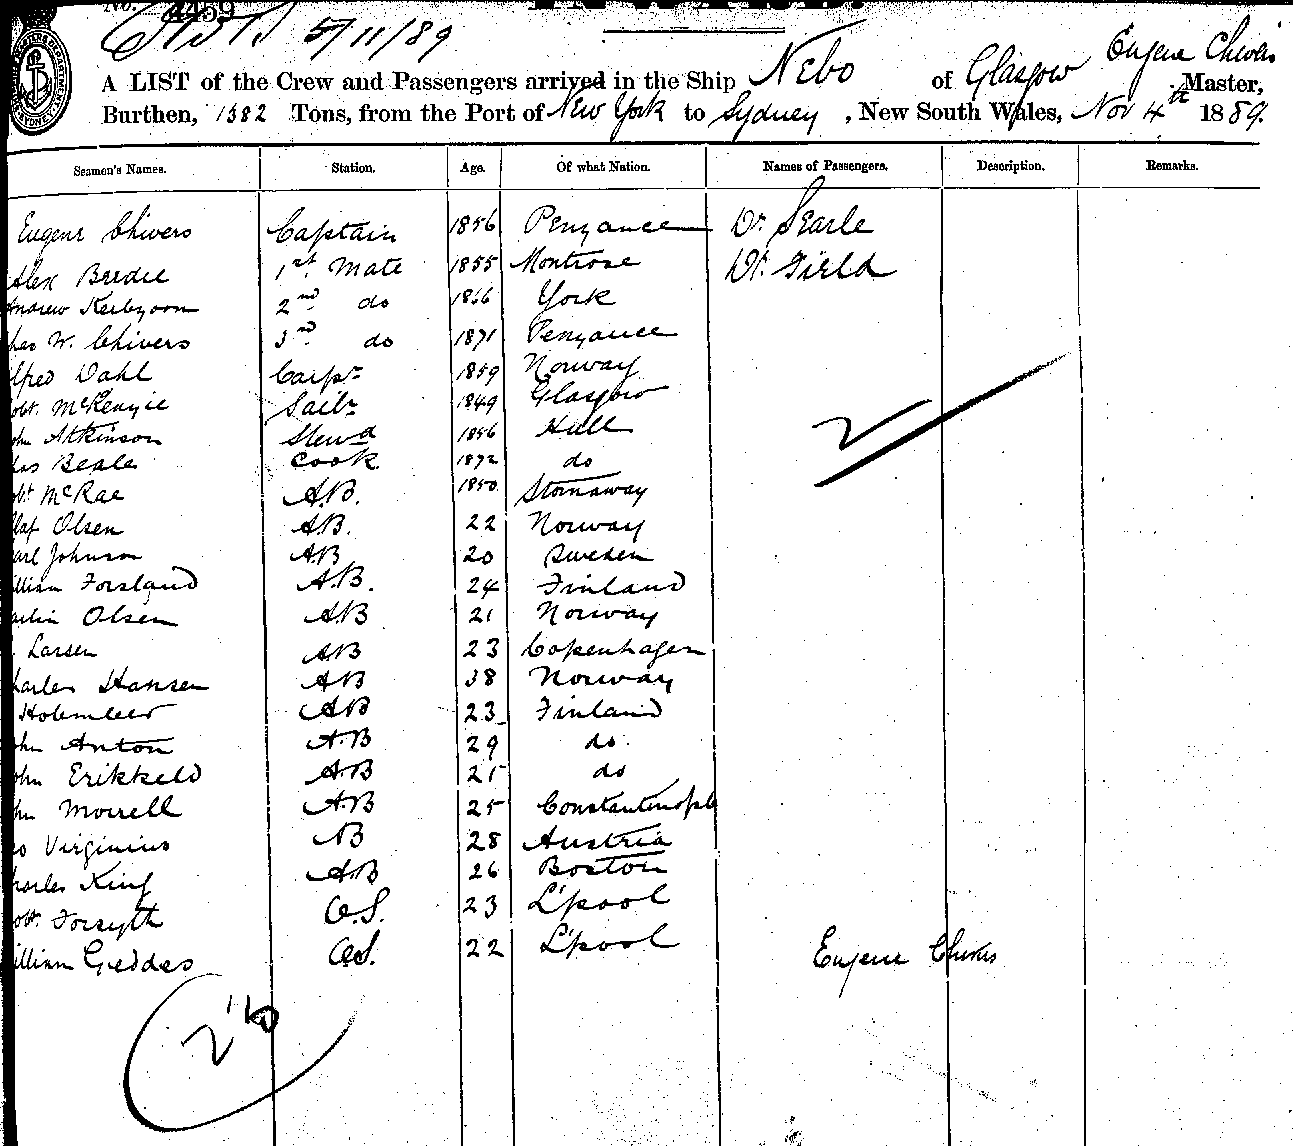 No. 4459
5/11/89
A LIST of the Crew and Passengers arrived in the Ship Nebo of Glasgow Eugene Chivers Master,
Burthen, 1382 Tons, from the Port of New York to Sydney, New South Wales, Nov 4th 1889.
Seamen's Names. Station. Age. Of what Nation. Names of Passengers. Description. Remarks.
Eugene Chivers Captain 1856 Penzance W. Searle
Alex 1st Mate 1855 Montrose W. Field
Andrew 2nd do 1866 York
has W. Chivers 3rd do 1871 Penzance
lfred Dahl Carpr 1859 Norway
obt. McKenzie Sailr 1849 Glasgow
ohn Atkinson Stewd 1856 Hull
has Beale Cook 1872 do
obt McRae A.B. 1850 Stornaway
laf Olsen A.B. 22 Norway
arl Johnson A.B 20 Sweden
illiam Forsland A.B. 24 Finland
artin Olsen A.B 21 Norway
Larsen A.B 23 Copenhagen
harles Hansen A.B 38 Norway
A.B 23 Finland
ohn Anton A.B 29 do
ohn A.B 21 do
hn Morrell A.B 25 Constantinople
Virginius AB 28 Austria
harles King A.B 26 Boston
obt. Forsyth O.S. 23 L'pool
illiam Geddes O.S. 22 L'pool
Eugene Chivers
2